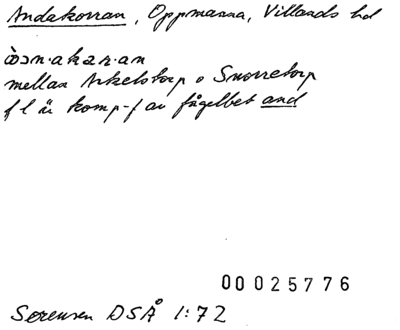 Andakorran, Oppmanna, Villands hd
mellan Arkelstorp o Snorretorp
f l är komp-f av fågelbet and
00025776
Sørensen DSÅ 1:72